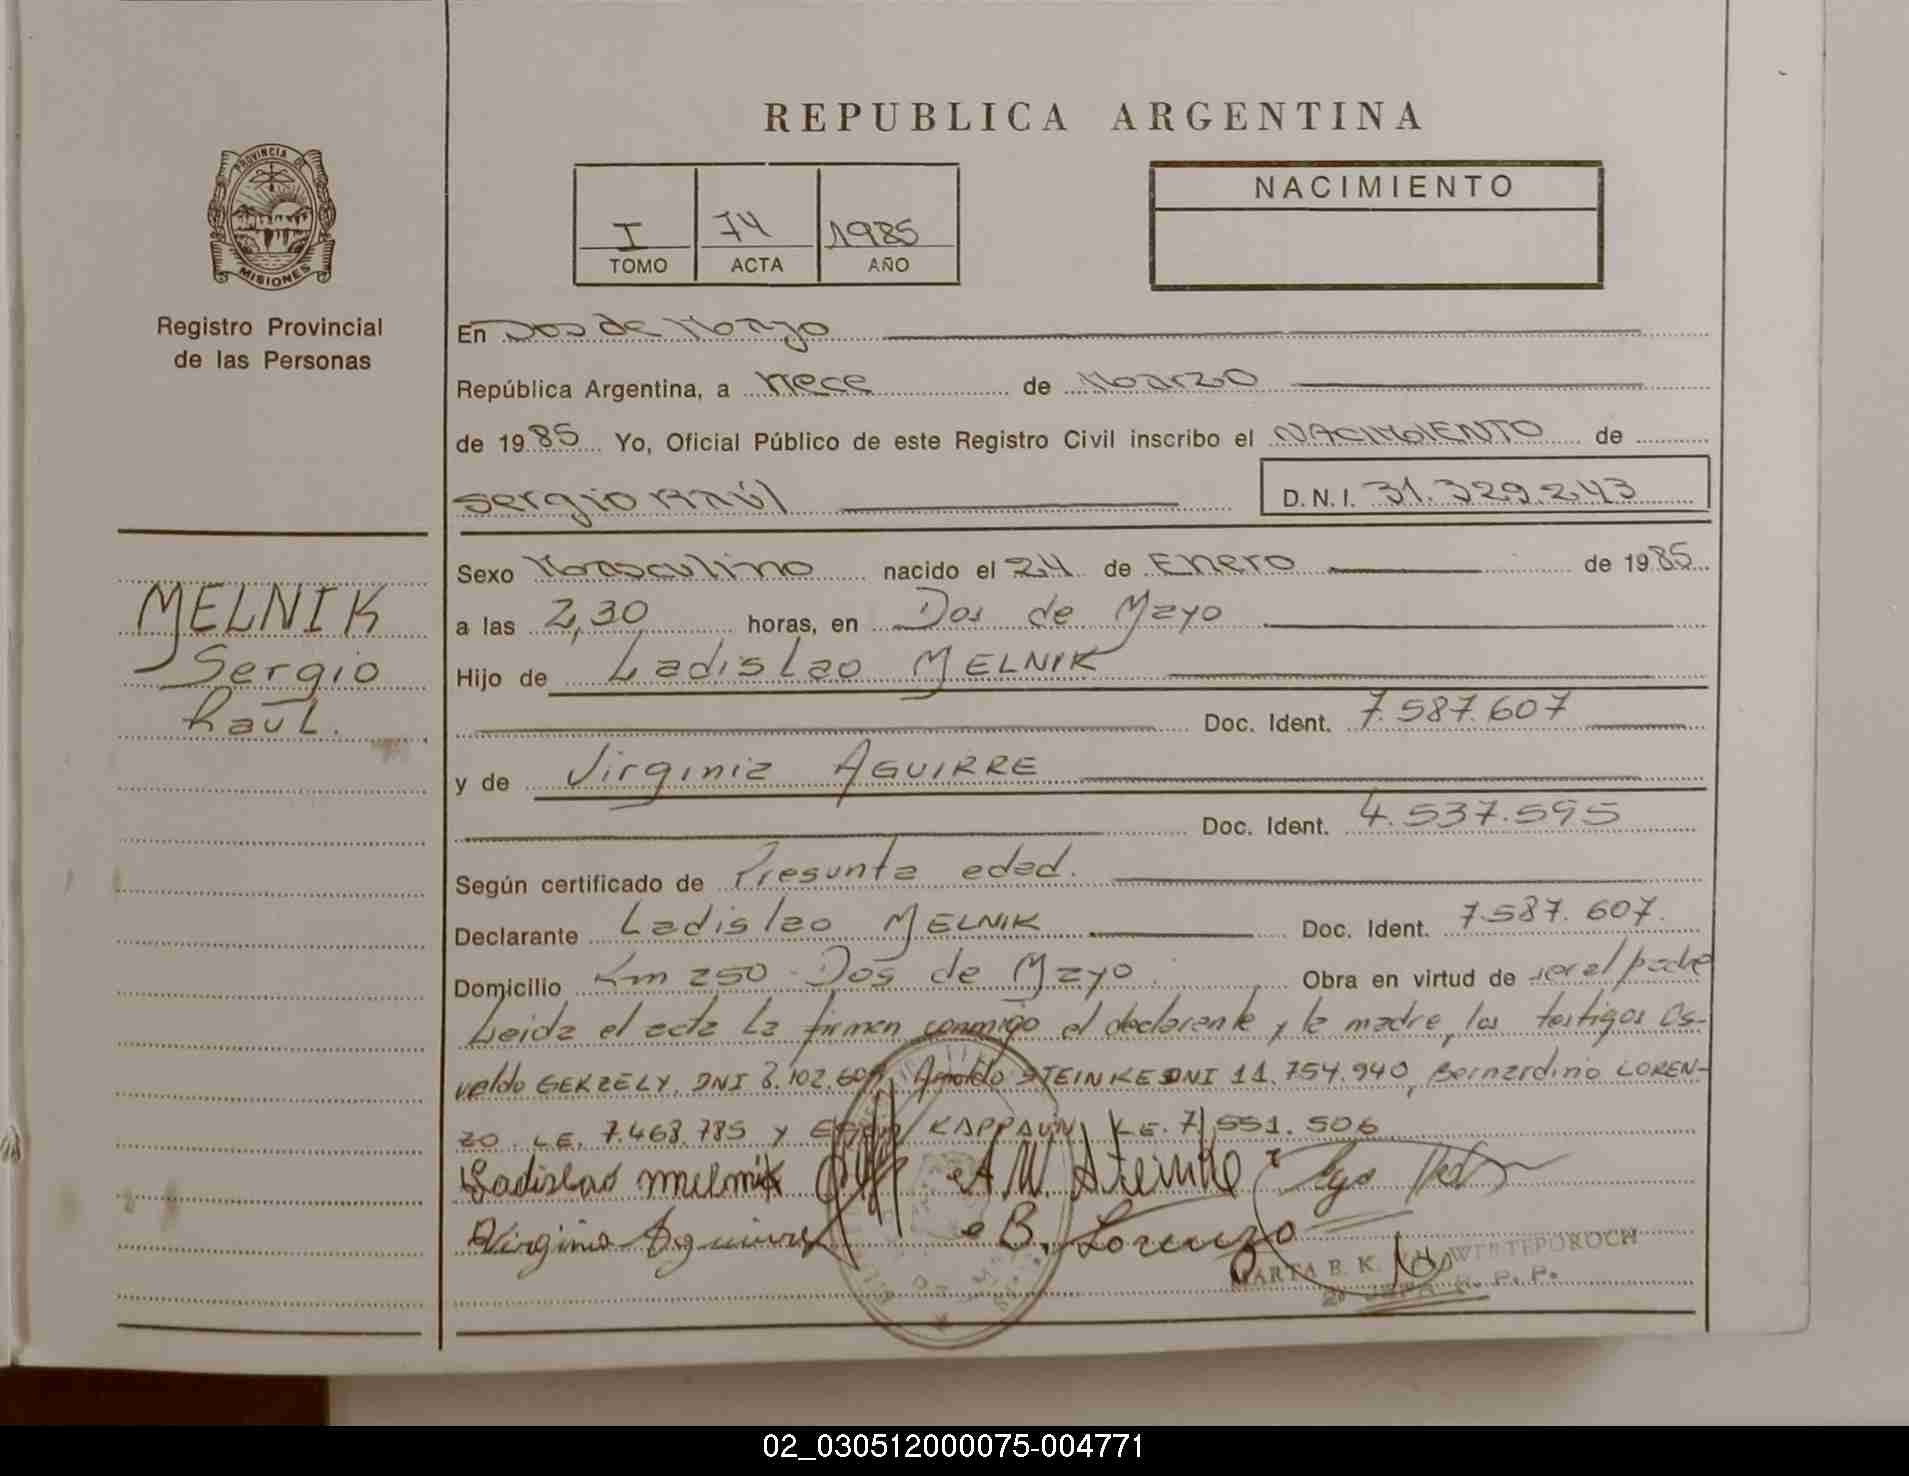 REPUBLICA ARGENTINA
PROVINCIA DE
MISIONES
Registro Provincial
de las Personas
I 74 1985
TOMO ACTA AÑO
NACIMIENTO
En Dos de Mayo
República Argentina, a trece de Marzo
de 1985 Yo, Oficial Público de este Registro Civil inscribo el NACIMIENTO de
Sergio Raúl D.N.I. 31.329.243
MELNIK
Sergio
Raúl.
Sexo Masculino nacido el 24 de Enero de 1985
a las 2,30 horas, en Dos de Mayo
Hijo de Ladislao MELNIK
Doc. Ident. 7.587.607
y de Virginia AGUIRRE
Doc. Ident. 4.537.595
Según certificado de Presunta edad.
Declarante Ladislao MELNIK Doc. Ident. 7.587.607.
Domicilio Km 250 - Dos de Mayo. Obra en virtud de ser el padre
Leida el acta la firman conmigo el declarante y la madre, los testigos Os-
valdo GEKZELY, DNI 8.102. Arnoldo STEINKE DNI 11.754.940, Bernardino LOREN-
ZO. LE. 7.468.785 y KAPPAUN LE. 7.551.506
Ladislao Melnik A. W. Steinke
Virginia Aguirre B. Lorenzo
MARTA B. K.
R. P. P.
02_030512000075-004771